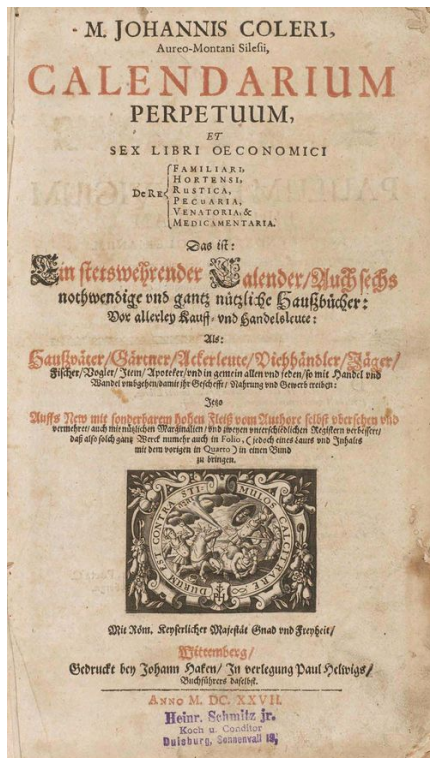 M. JOHANNIS COLERI,
Aureo-Montani Silesii,
CALENDARIUM
PERPETUUM,
ET
SEX LIBRI OECONOMICI
De RE
FAMILIARI,
HORTENSI,
RUSTICA,
PECUARIA,
VENATORIA, &
MEDICAMENTARIA.
Das ist:
Ein stetswehrender Calender/Auch sechs
nothwendige vnd gantz nützliche Haußbücher:
Vor allerley Kauff- vnd Handelsleute:
Als:
Haußväter/Gärtner/Ackerleute/Viehhändler/Jäger/
Fischer/Vogler/Item/Apoteker/vnd in gemein allen vnd jeden/so mit Handel vnd
Wandel vmbgehen/damit jhr Gescheffte/Nahrung vnd Gewerb treiben:
Jetzo
Auffs New mit sonderbarem hohen Fleiß vom Authore selbst vbersehen vnd
vermehret/auch mit nützlichen Marginalien/vnd zweyen vnterschiedlichen Registern verbessert/
daß also solch gantz Werck nunmehr auch in Folio, (jedoch eines Lauts vnd Inhalts
mit dem vorigen in Quarto) in einen Bund
zu bringen.
DURUM EST CONTRA STIMULOS CALCITRARE
Mit Röm. Keyserlicher Majestät Gnad vnd Freyheit/
Wittemberg/
Gedruckt bey Johann Haken/In verlegung Paul Helwigs/
Buchführers daselbst.
ANNO M. DC. XXVII.
Heinr. Schmitz jr.
Koch u. Conditor
Duisburg, Sonnenwall 19,